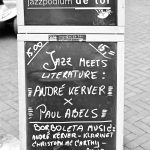 jazzpodium de tor
15.00
15,-
JAZZ MEETS
LITERATURE:
ANDRÉ KERVER
X
PAUL ABELS
BORBOLETA MUSIC:
ANDRÉ KERVER - KLARINET
CHRISTOPH MC CARTHY -